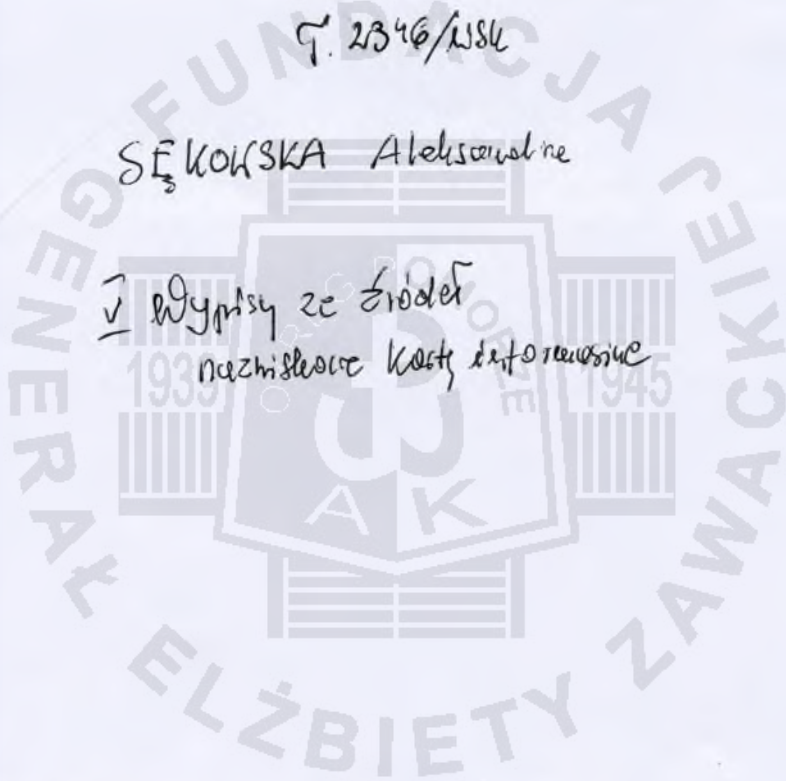 T. 2346/WSK
SĘKOWSKA Aleksandra
V Wypisy ze źródeł
nazwiskowe karty informacyjne
FUNDACJA GENERAŁ ELŻBIETY ZAWACKIEJ
OKRĘG POMORZE
1939 1945
AK